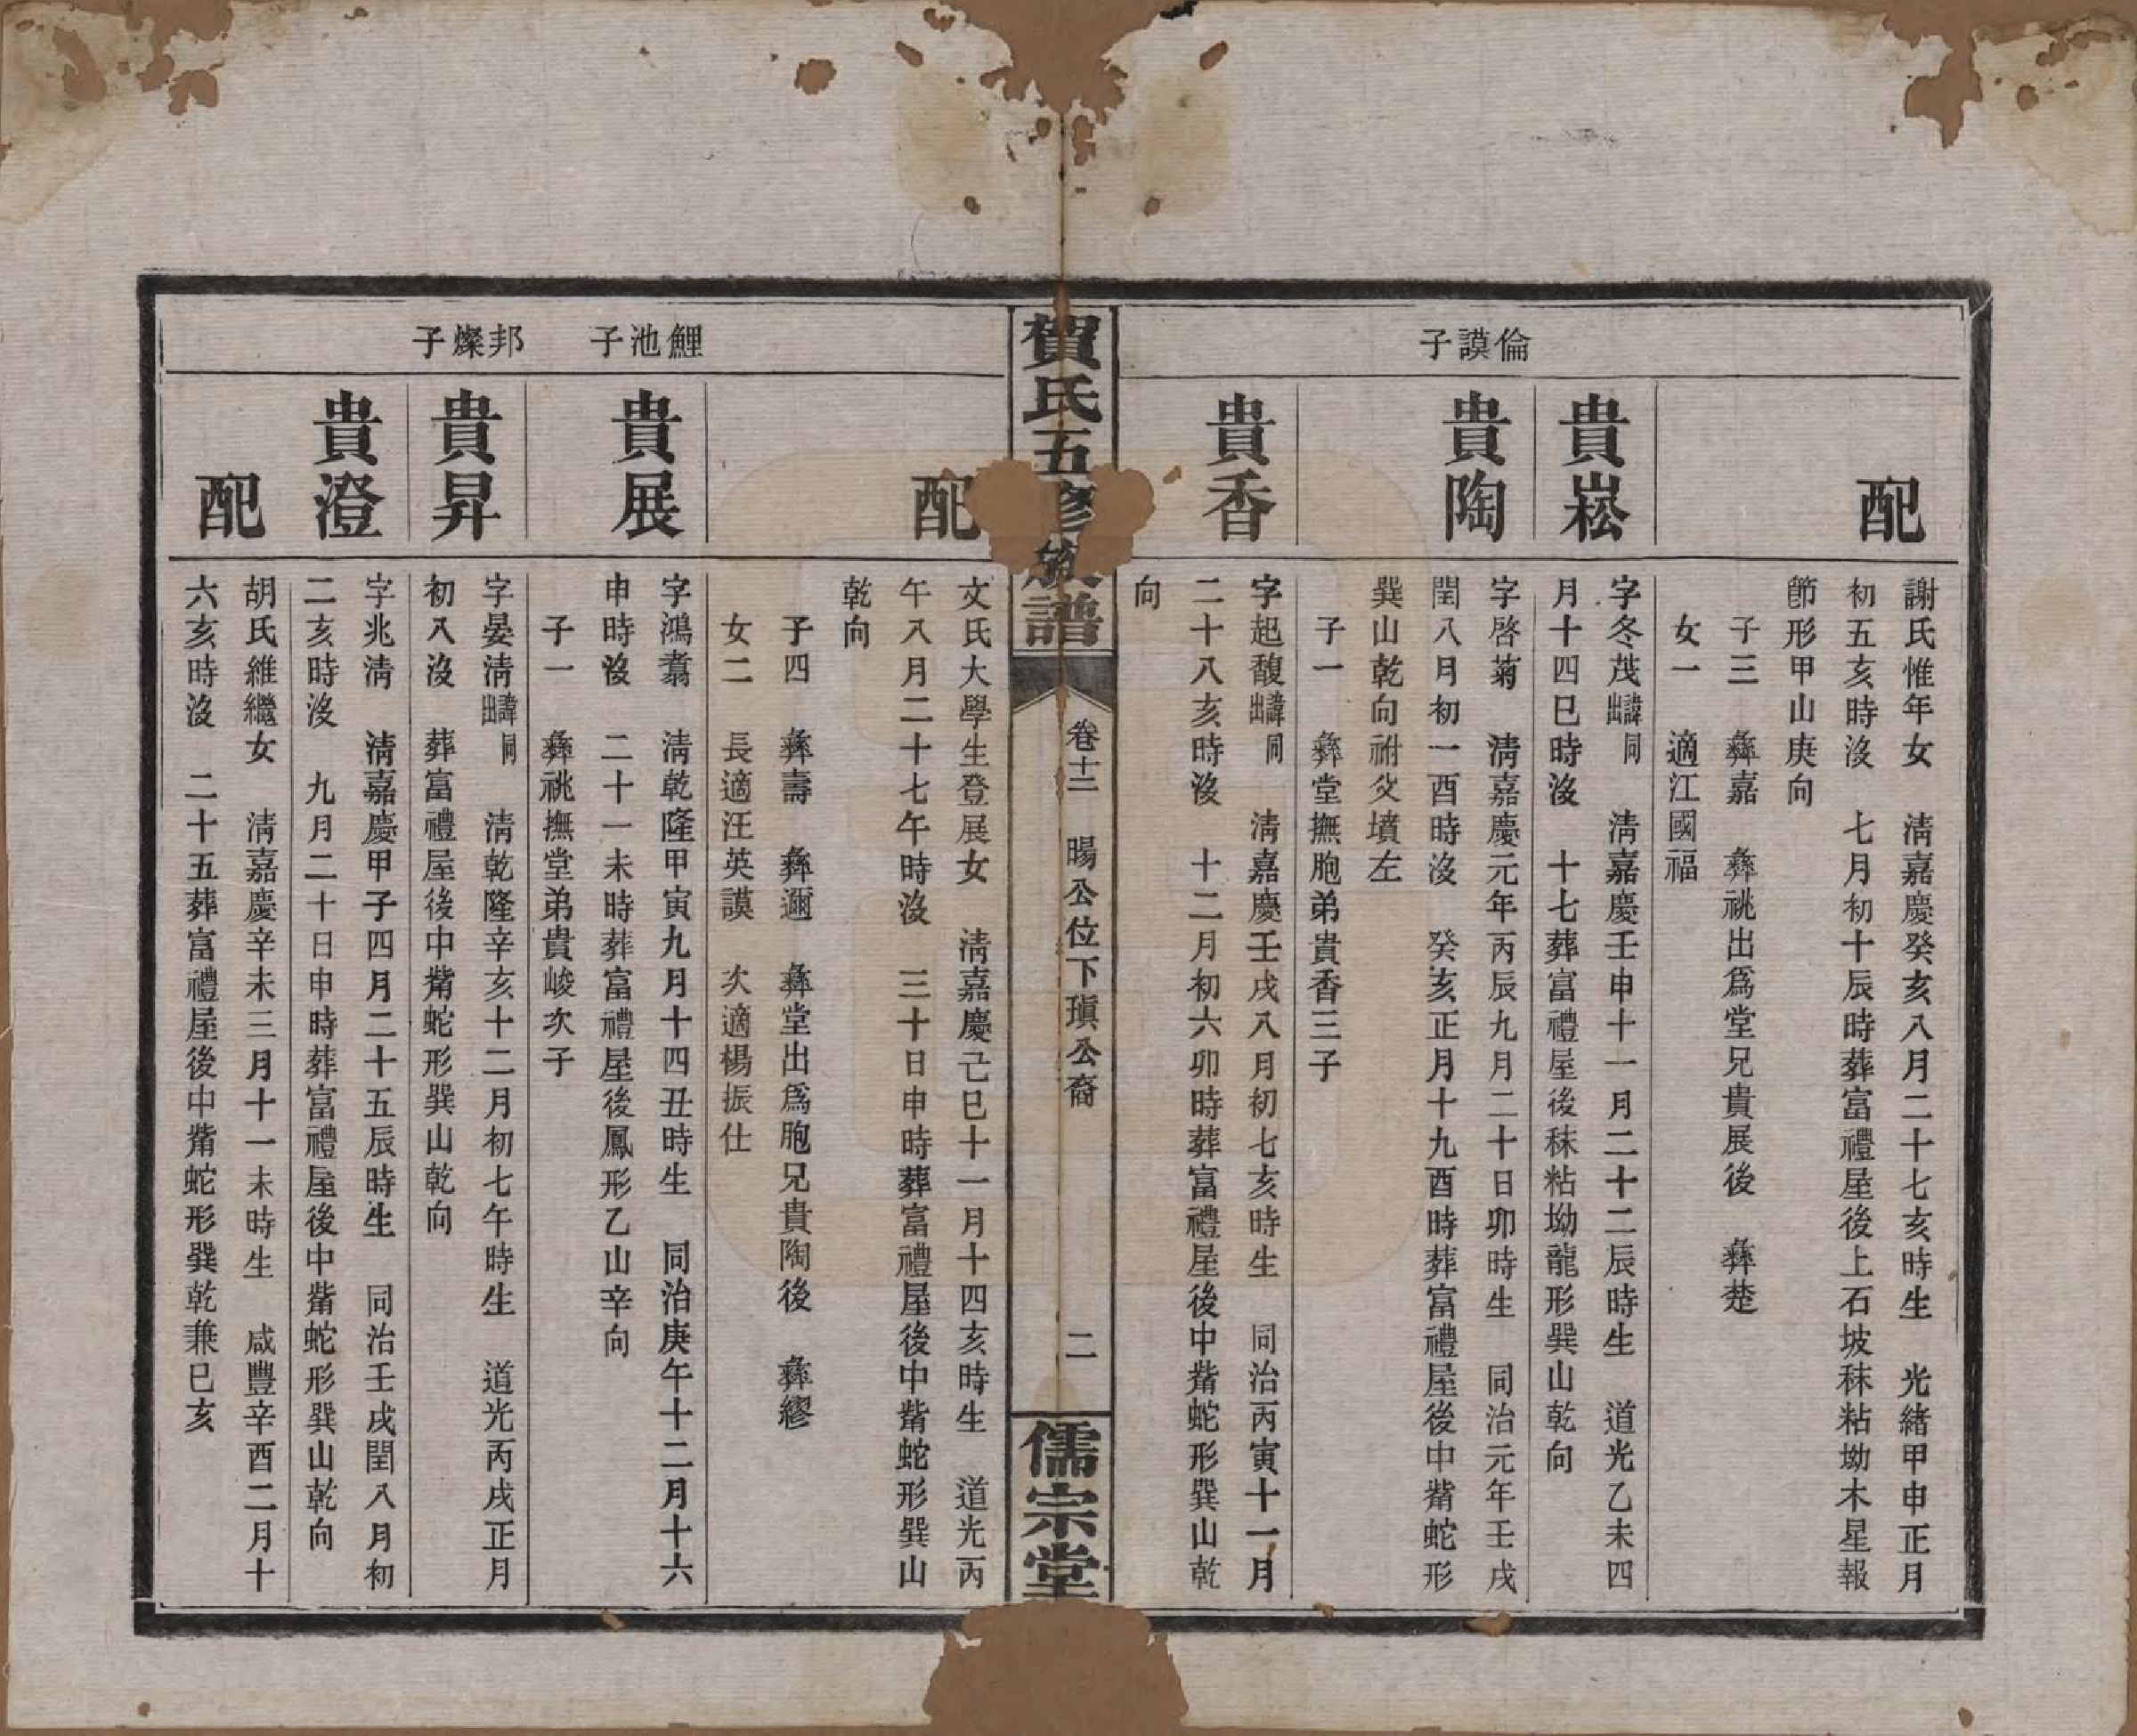 倫謨子
配
謝氏惟年女　清嘉慶癸亥八月二十七亥時生　光緒甲申正月
初五亥時沒　七月初十辰時葬富禮屋後上石坡秣粘坳木星報
節形甲山庚向
子三　彝嘉　彝祧出爲堂兄貴展後　彝楚
女一　適江國福
貴崧
字冬茂諱同出　清嘉慶壬申十一月二十二辰時生　道光乙未四
月十四巳時沒　十七葬富禮屋後秣粘坳龍形巽山乾向
貴陶
字啓菊　清嘉慶元年丙辰九月二十日卯時生　同治元年壬戌
閏八月初一酉時沒　癸亥正月十九酉時葬富禮屋後中觜蛇形
巽山乾向祔父墳左
子一　彝堂撫胞弟貴香三子
貴香
字起馥諱同出　清嘉慶壬戌八月初七亥時生　同治丙寅十一月
二十八亥時沒　十二月初六卯時葬富禮屋後中觜蛇形巽山乾
向
賀氏五修族譜
卷十二　暘公位下瑱公裔
二
儒宗堂
配
文氏大學生登展女　清嘉慶己巳十一月十四亥時生　道光丙
午八月二十七午時沒　三十日申時葬富禮屋後中觜蛇形巽山
乾向
子四　彝壽　彝邇　彝堂出爲胞兄貴陶後　彝繆
女二　長適汪英謨　次適楊振仕
鯉池子
貴展
字鴻翥　清乾隆甲寅九月十四丑時生　同治庚午十二月十六
申時沒　二十一未時葬富禮屋後鳳形乙山辛向
子一　彝祧撫堂弟貴峻次子
邦燦子
貴昇
字晏清諱同出　清乾隆辛亥十二月初七午時生　道光丙戌正月
初入沒　葬富禮屋後中觜蛇形巽山乾向
貴澄
字兆清　清嘉慶甲子四月二十五辰時生　同治壬戌閏八月初
二亥時沒　九月二十日申時葬富禮屋後中觜蛇形巽山乾向
配
胡氏維繼女　清嘉慶辛未三月十一未時生　咸豐辛酉二月十
六亥時沒　二十五葬富禮屋後中觜蛇形巽乾兼巳亥